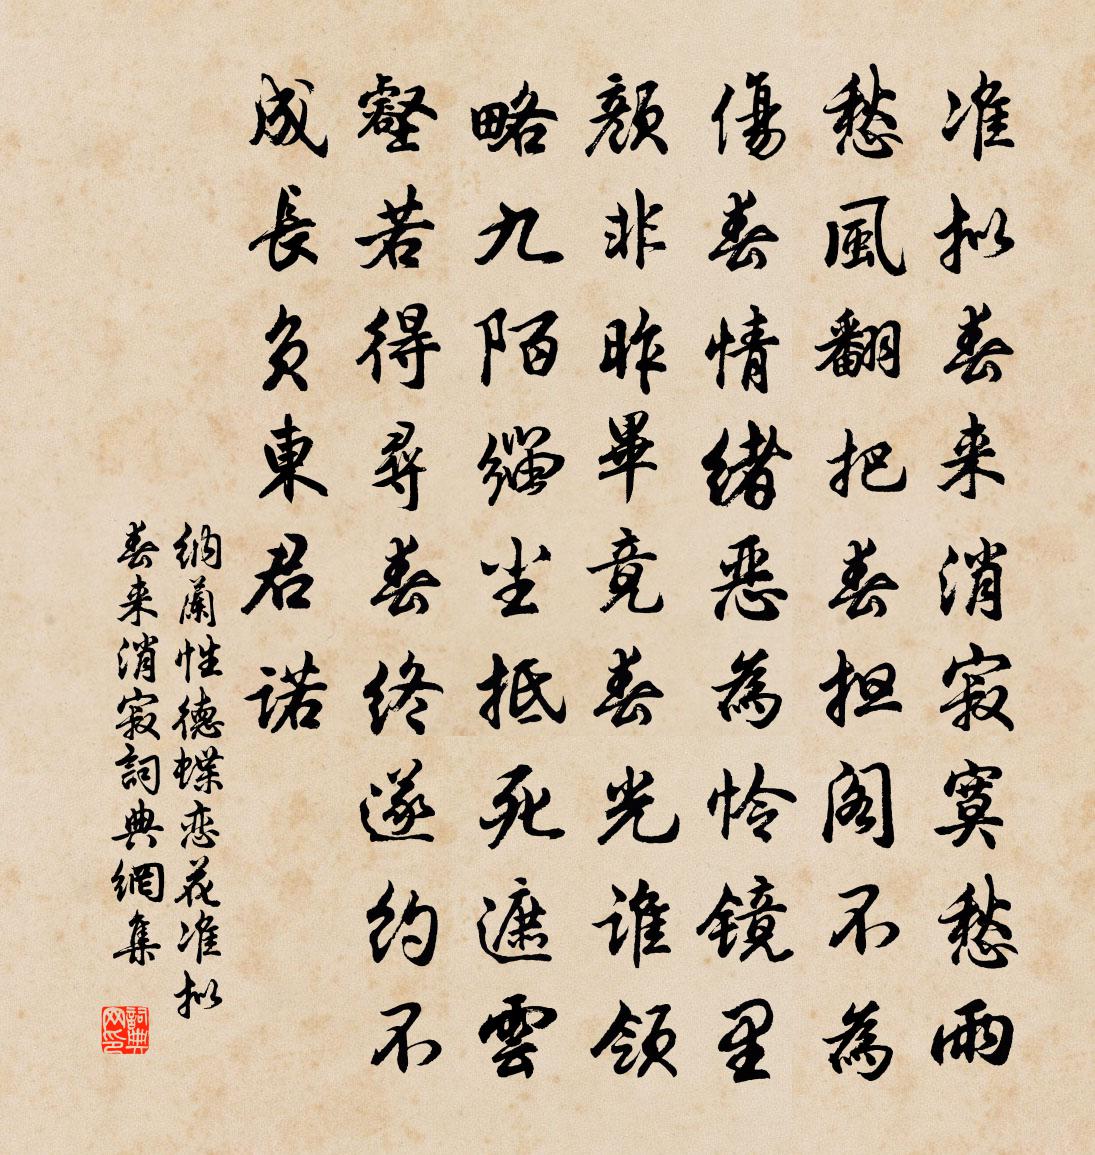 准拟春来消寂寞愁雨
愁風翻把春担阁不為
傷春情緒惡為怜镜里
顏非昨畢竟春光谁领
略九陌緇尘抵死遮雲
壑若得尋春终遂约不
成長負東君诺
納蘭性德蝶恋花准拟
春来消寂詞典網集
詞典网印